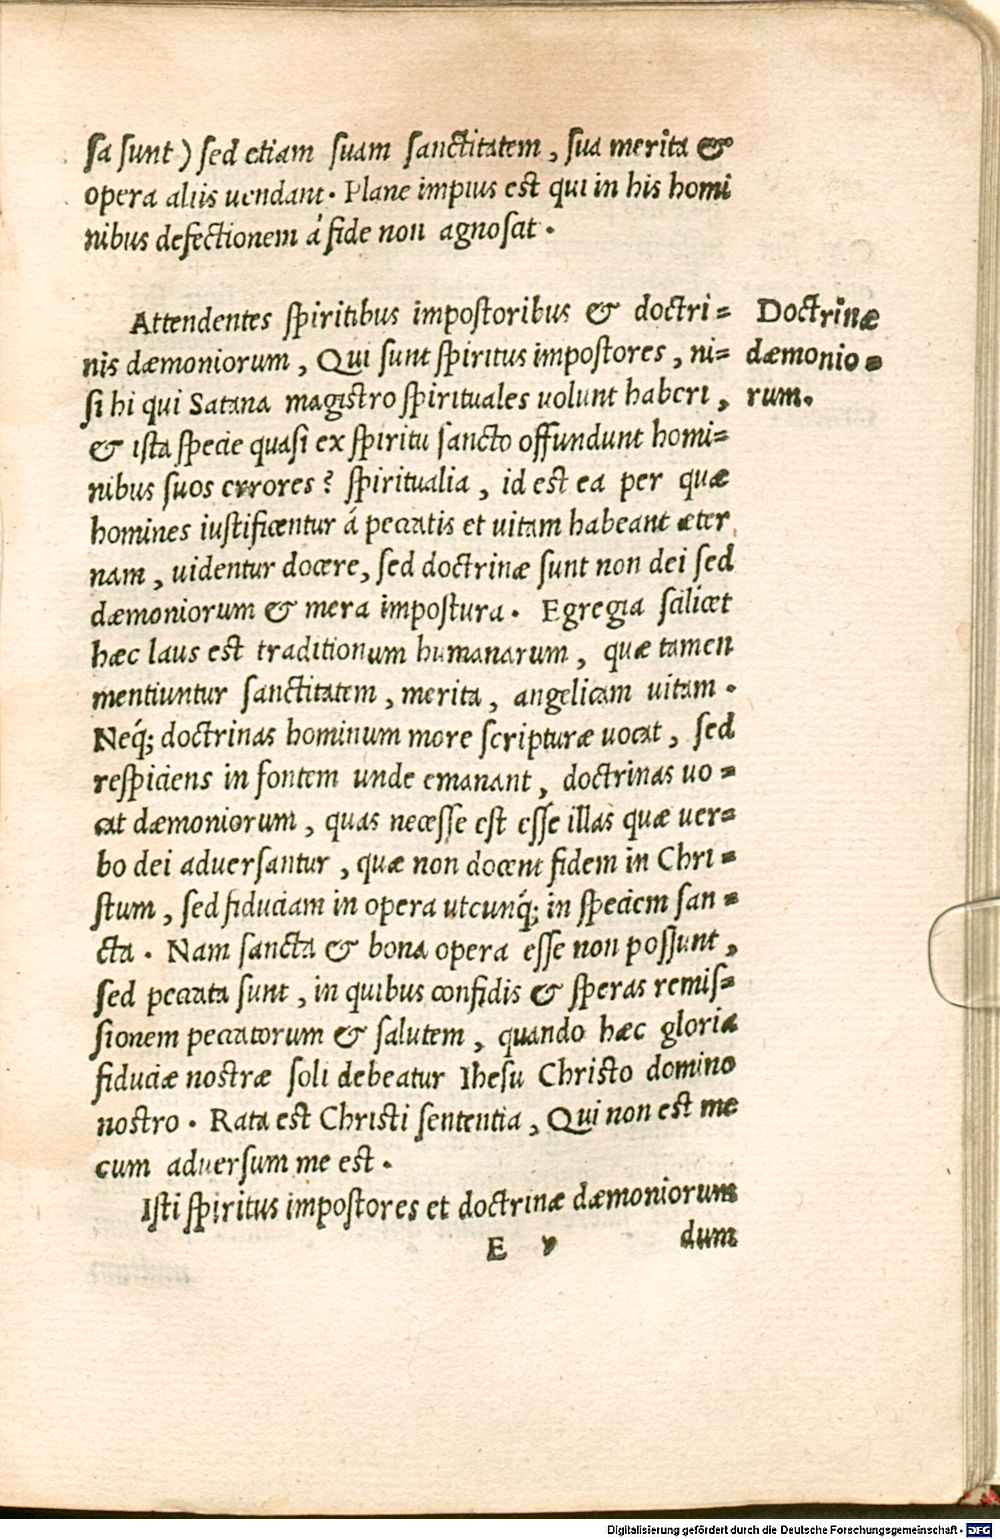 sa sunt) sed etiam suam sanctitatem, sua merita &
opera aliis uendant. Plane impius est qui in his homi
nibus defectionem á fide non agnosat.
Attendentes spiritibus impostoribus & doctri=
nis dæmoniorum, Qui sunt spiritus impostores, ni=
si hi qui Satana magistro spirituales uolunt haberi,
& ista specie quasi ex spiritu sancto offundunt homi=
nibus suos errores? spiritualia, id est ea per quæ
homines iustificentur á peccatis et uitam habeant æter
nam, uidentur docere, sed doctrinæ sunt non dei sed
dæmoniorum & mera impostura. Egregia scilicet
hæc laus est traditionum humanarum, quæ tamen
mentiuntur sanctitatem, merita, angelicam uitam.
Neq́; doctrinas hominum more scripturæ uocat, sed
respiciens in fontem unde emanant, doctrinas uo=
cat dæmoniorum, quas necesse est esse illas quæ uer=
bo dei aduersantur, quæ non docent fidem in Chri=
stum, sed fiduciam in opera utcunq́; in speciem san=
cta. Nam sancta & bona opera esse non possunt,
sed peccata sunt, in quibus confidis & speras remis=
sionem peccatorum & salutem, quando hæc gloria
fiduciæ nostræ soli debeatur Ihesu Christo domino
nostro. Rata est Christi sententia, Qui non est me
cum aduersum me est.
Isti spiritus impostores et doctrinæ dæmoniorum
E v
dum
Doctrinæ
dæmonio=
rum.
Digitalisierung gefördert durch die Deutsche Forschungsgemeinschaft - DFG